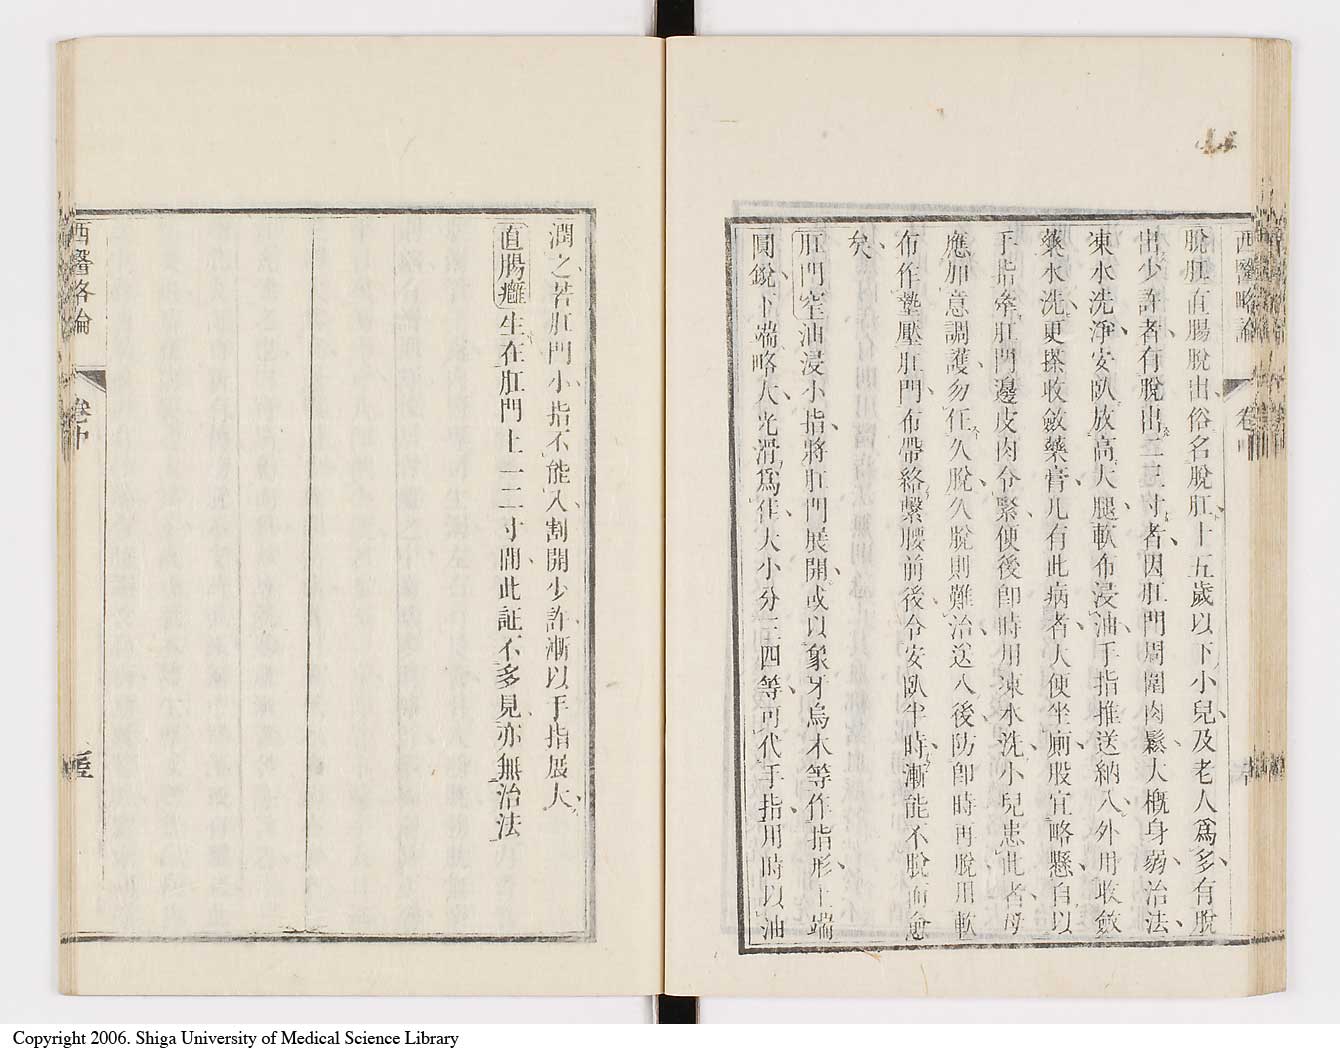 西醫略論
卷中
脫肛直腸脫出、俗名脫肛、十五歲以下小兒及老人爲多、有脫
出少許者、有脫出二三寸者、因肛門周圍肉鬆、大槪身弱、治法、
凍水洗淨、安臥放高大腿、軟布浸油、手指推送納入、外用收斂
藥水洗、更搽收斂藥膏、凡有此病者、大便坐廁股宜略懸、自以
手指牽肛門邊皮肉令緊、便後卽時用凍水洗、小兒患此者、母
應加意調護、勿任久脫、久脫則難治、送入後、防卽時再脫、用軟
布作墊壓肛門、布帶絡繫腰前後、令安臥半時、漸能不脫而愈
矣、
肛門窄油浸小指、將肛門展開、或以象牙烏木等作指形、上端
圓銳、下端略大、光滑爲佳、大小分三四等、可代手指、用時以油
潤之、若肛門小、指不能入、割開少許、漸以手指展大、
直腸癰 生在肛門上一二寸間、此証不多見、亦無治法
西醫略論
卷中